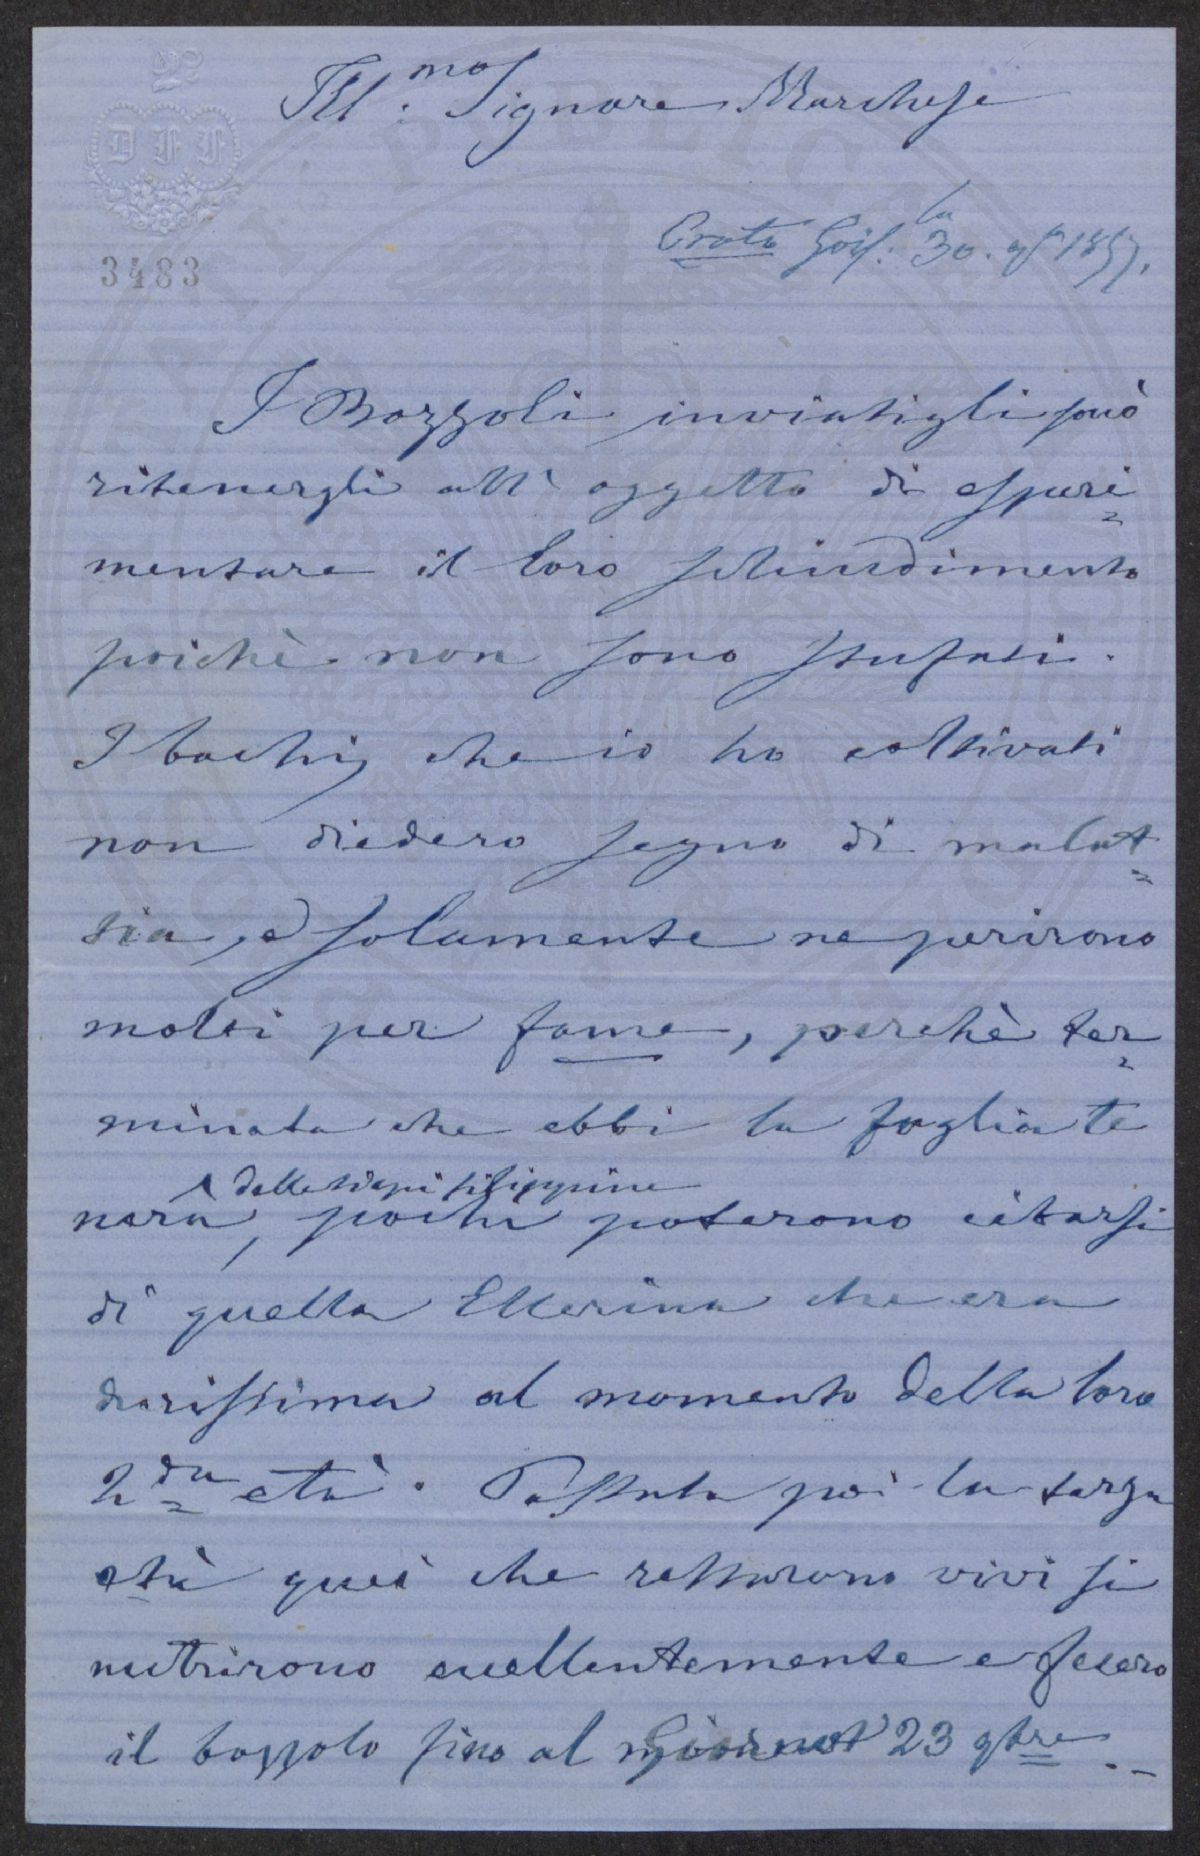 Ill.mo Signore Marchese
DFF
3483
30. 9bre 1857.
I Bozzoli inviatigli può
ritenergli all' oggetto di esperi=
mentare il loro schiudimento
poichè non sono stufati.
I bachi, che io ho coltivati
non diedero segno di malat=
tia, e solamente ne perirono
molti per fame, perchè ter=
minata che ebbi la foglia te
nera, delle siepi filippine pochi poterono cibarsi
di quella Ellerina che era
durissima al momento della loro
2.da età. Passata poi la terza
età quei che restarono vivi si
nutrirono eccellentemente e fecero
il bozzolo fino al Giorno 23 9bre.